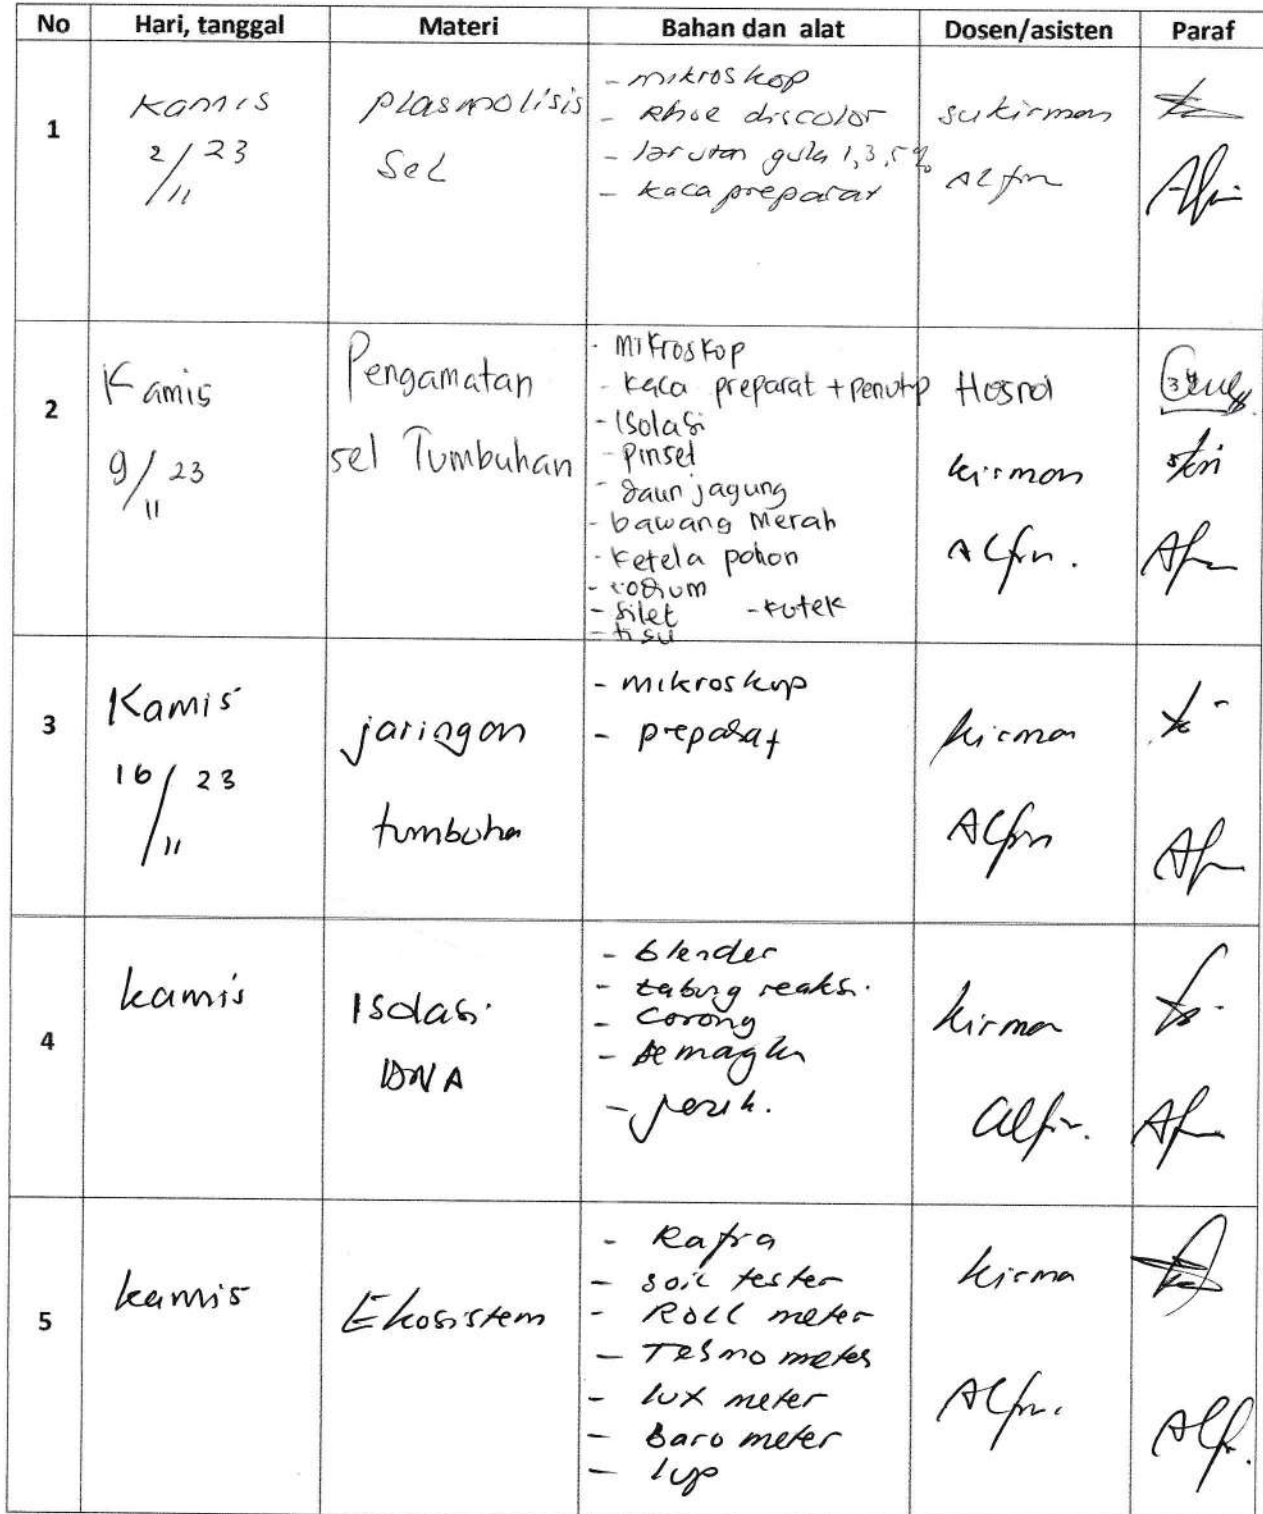 No Hari, tanggal Materi Bahan dan alat Dosen/asisten Paraf
1
Kamis
2/11 23
plasmolisis
Sel
- mikroskop
- Rhoe discolor
- larutan gula 1,3,5%
- kaca preparat
sukirman
Alfin
2
Kamis
9/11 23
Pengamatan
sel Tumbuhan
- Mikroskop
- kaca preparat + penutup
- Isolasi
- Pinset
- daun jagung
- bawang merah
- Ketela pohon
- silet - kutek
- tisu
Hosnol
kirman
Alfin.
3
Kamis
16/11 23
jaringan
tumbuha
- mikroskop
- preparat
kirman
Alfin
4
kamis
Isolasi
DNA
- blender
- tabung reaksi
- corong
- semagka
- jeruk.
kirman
Alfin.
5
kamis
Ekosistem
- Rafia
- soil tester
- Roll meter
- Termo meter
- lux meter
- Baro meter
- lup
kirma
Alfin.